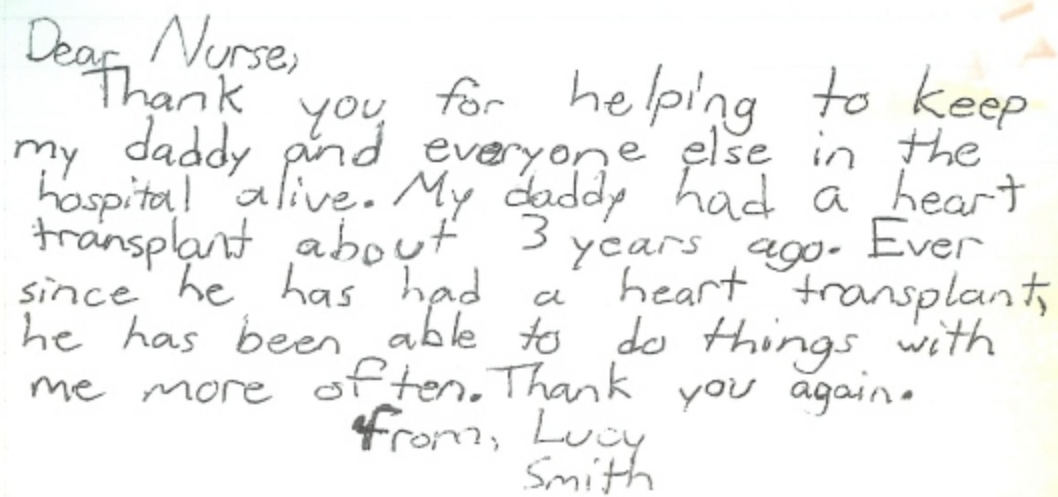 Dear Nurse,
Thank you for helping to keep
my daddy and everyone else in the
hospital alive. My daddy had a heart
transplant about 3 years ago. Ever
since he has had a heart transplant,
he has been able to do things with
me more often. Thank you again.
From, Lucy
Smith